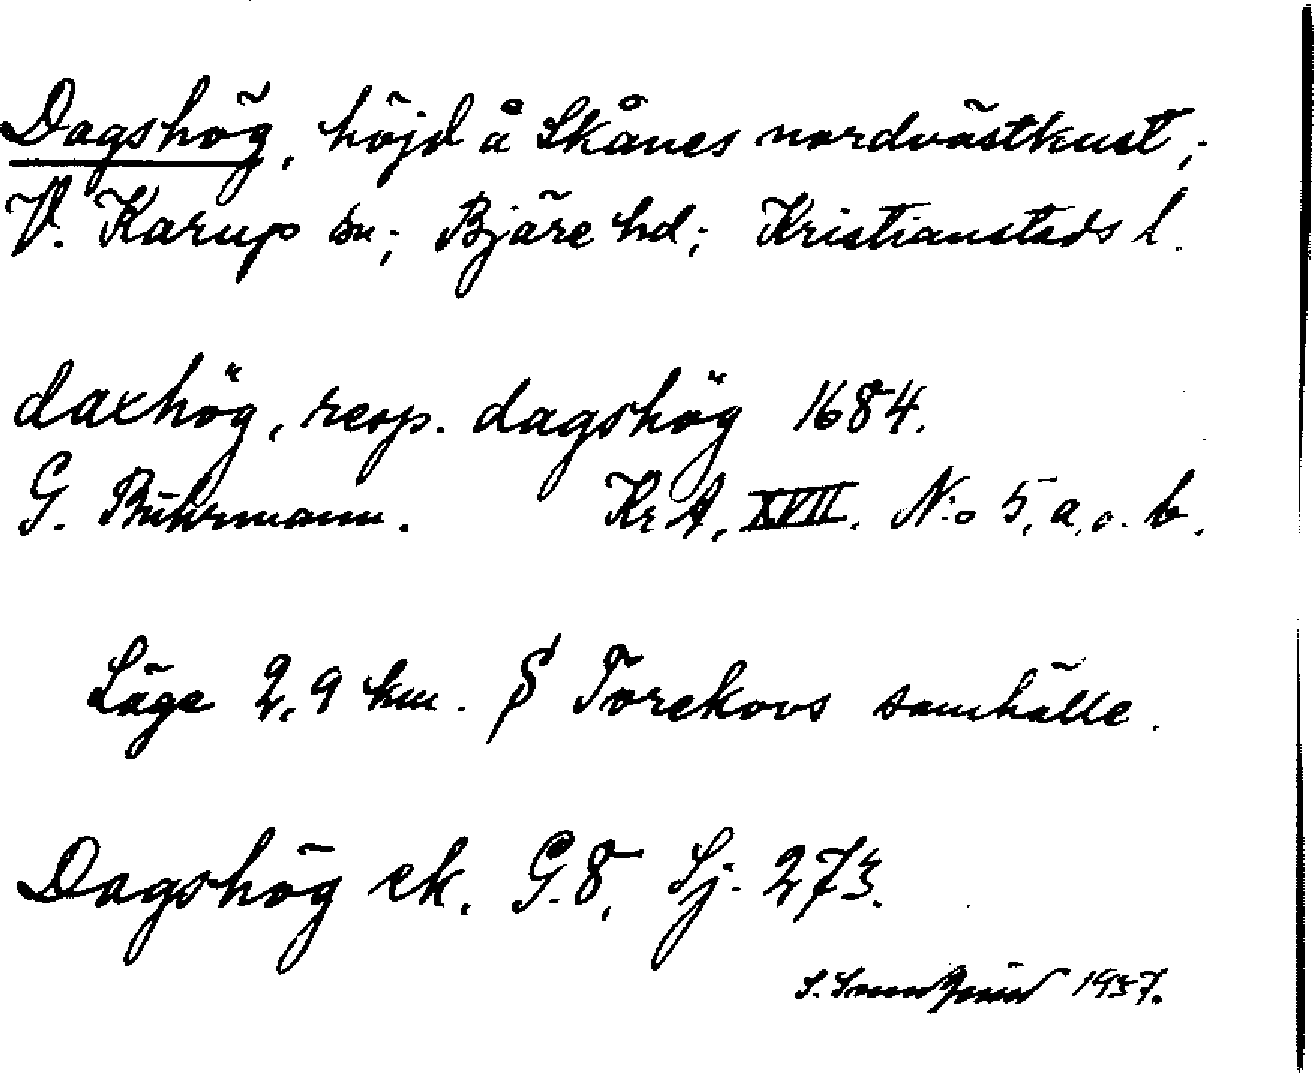 Dagshög, höjd å Skånes nordvästkust;
V. Karup sn; Bjäre hd; Kristianstads l.
daxhög, resp. dagshög 1684.
G. Buhrmann. Kr A. XVII. N:o 5, a. o. b.
Läge 2,9 km. S Torekovs samhälle.
Dagshög ek. G.8. Sj. 273.
S. 1937.